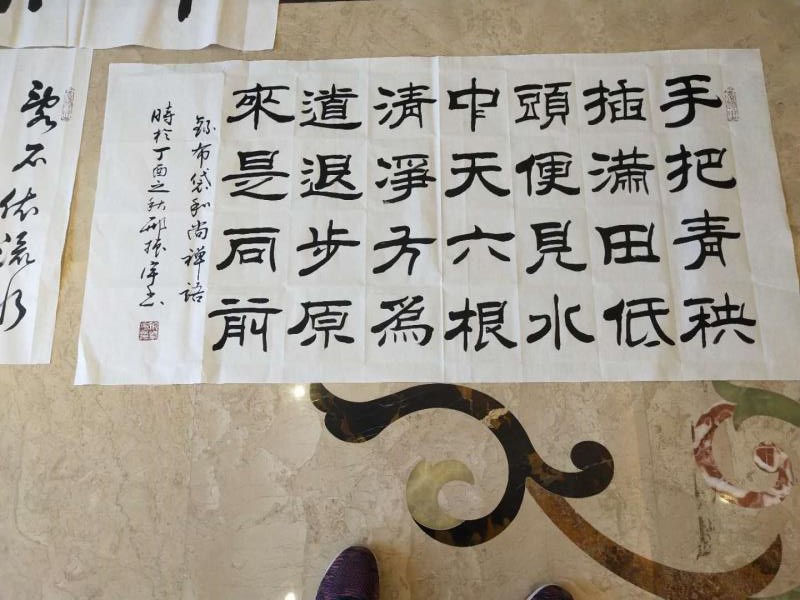 手把青秧
插滿田低
頭便見水
中天六根
清淨方為
道退步原
來是同前
錄布袋和尚禅語
時於丁酉之秋邢振宇书
石依流